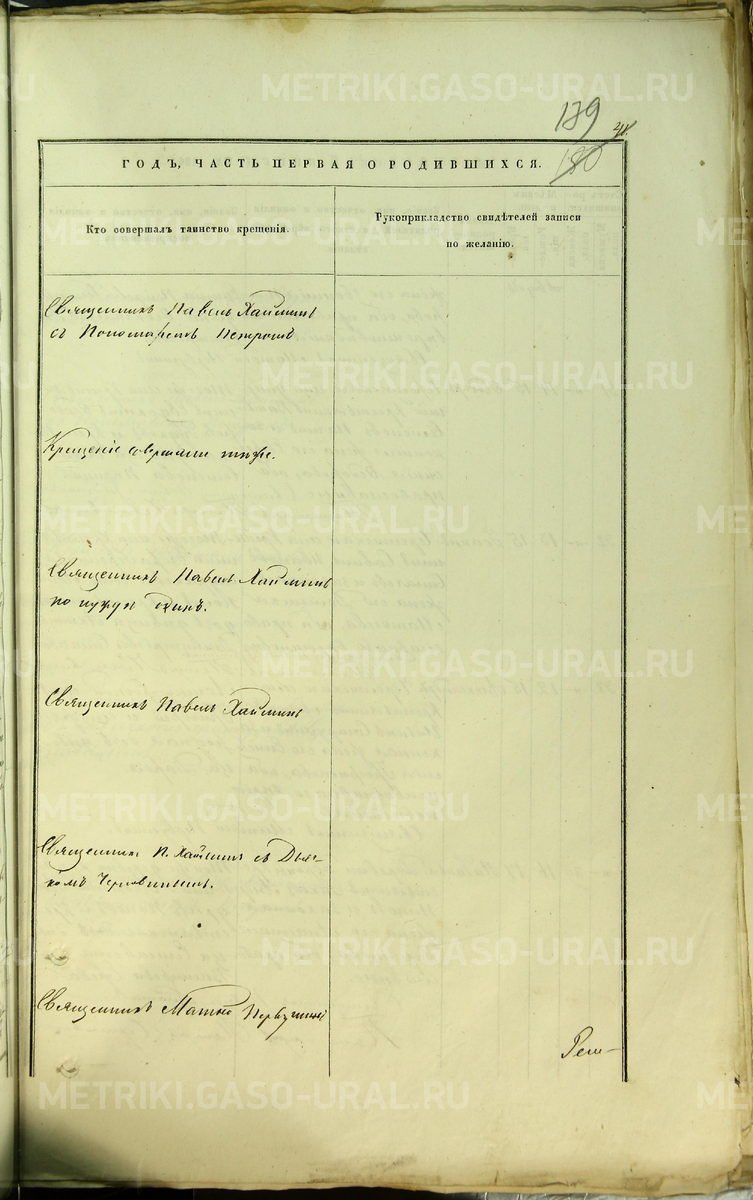 METRIKI.GASO-URAL.RU
179
180
ГОДЪ, ЧАСТЬ ПЕРВАЯ О РОДИВШИХСЯ.
Кто совершалъ таинство крещенія.
Рукоприкладство свидѣтелей записи
по желанію.
Священникъ Павелъ Хайминъ
съ Пономаремъ Петромъ
Крещеніе совершали тѣже.
Священникъ Павелъ Хайминъ
по нуждѣ одинъ.
Священникъ Павелъ Хайминъ
Священникъ П. Хайминъ съ Дьяч-
комъ
Священникъ